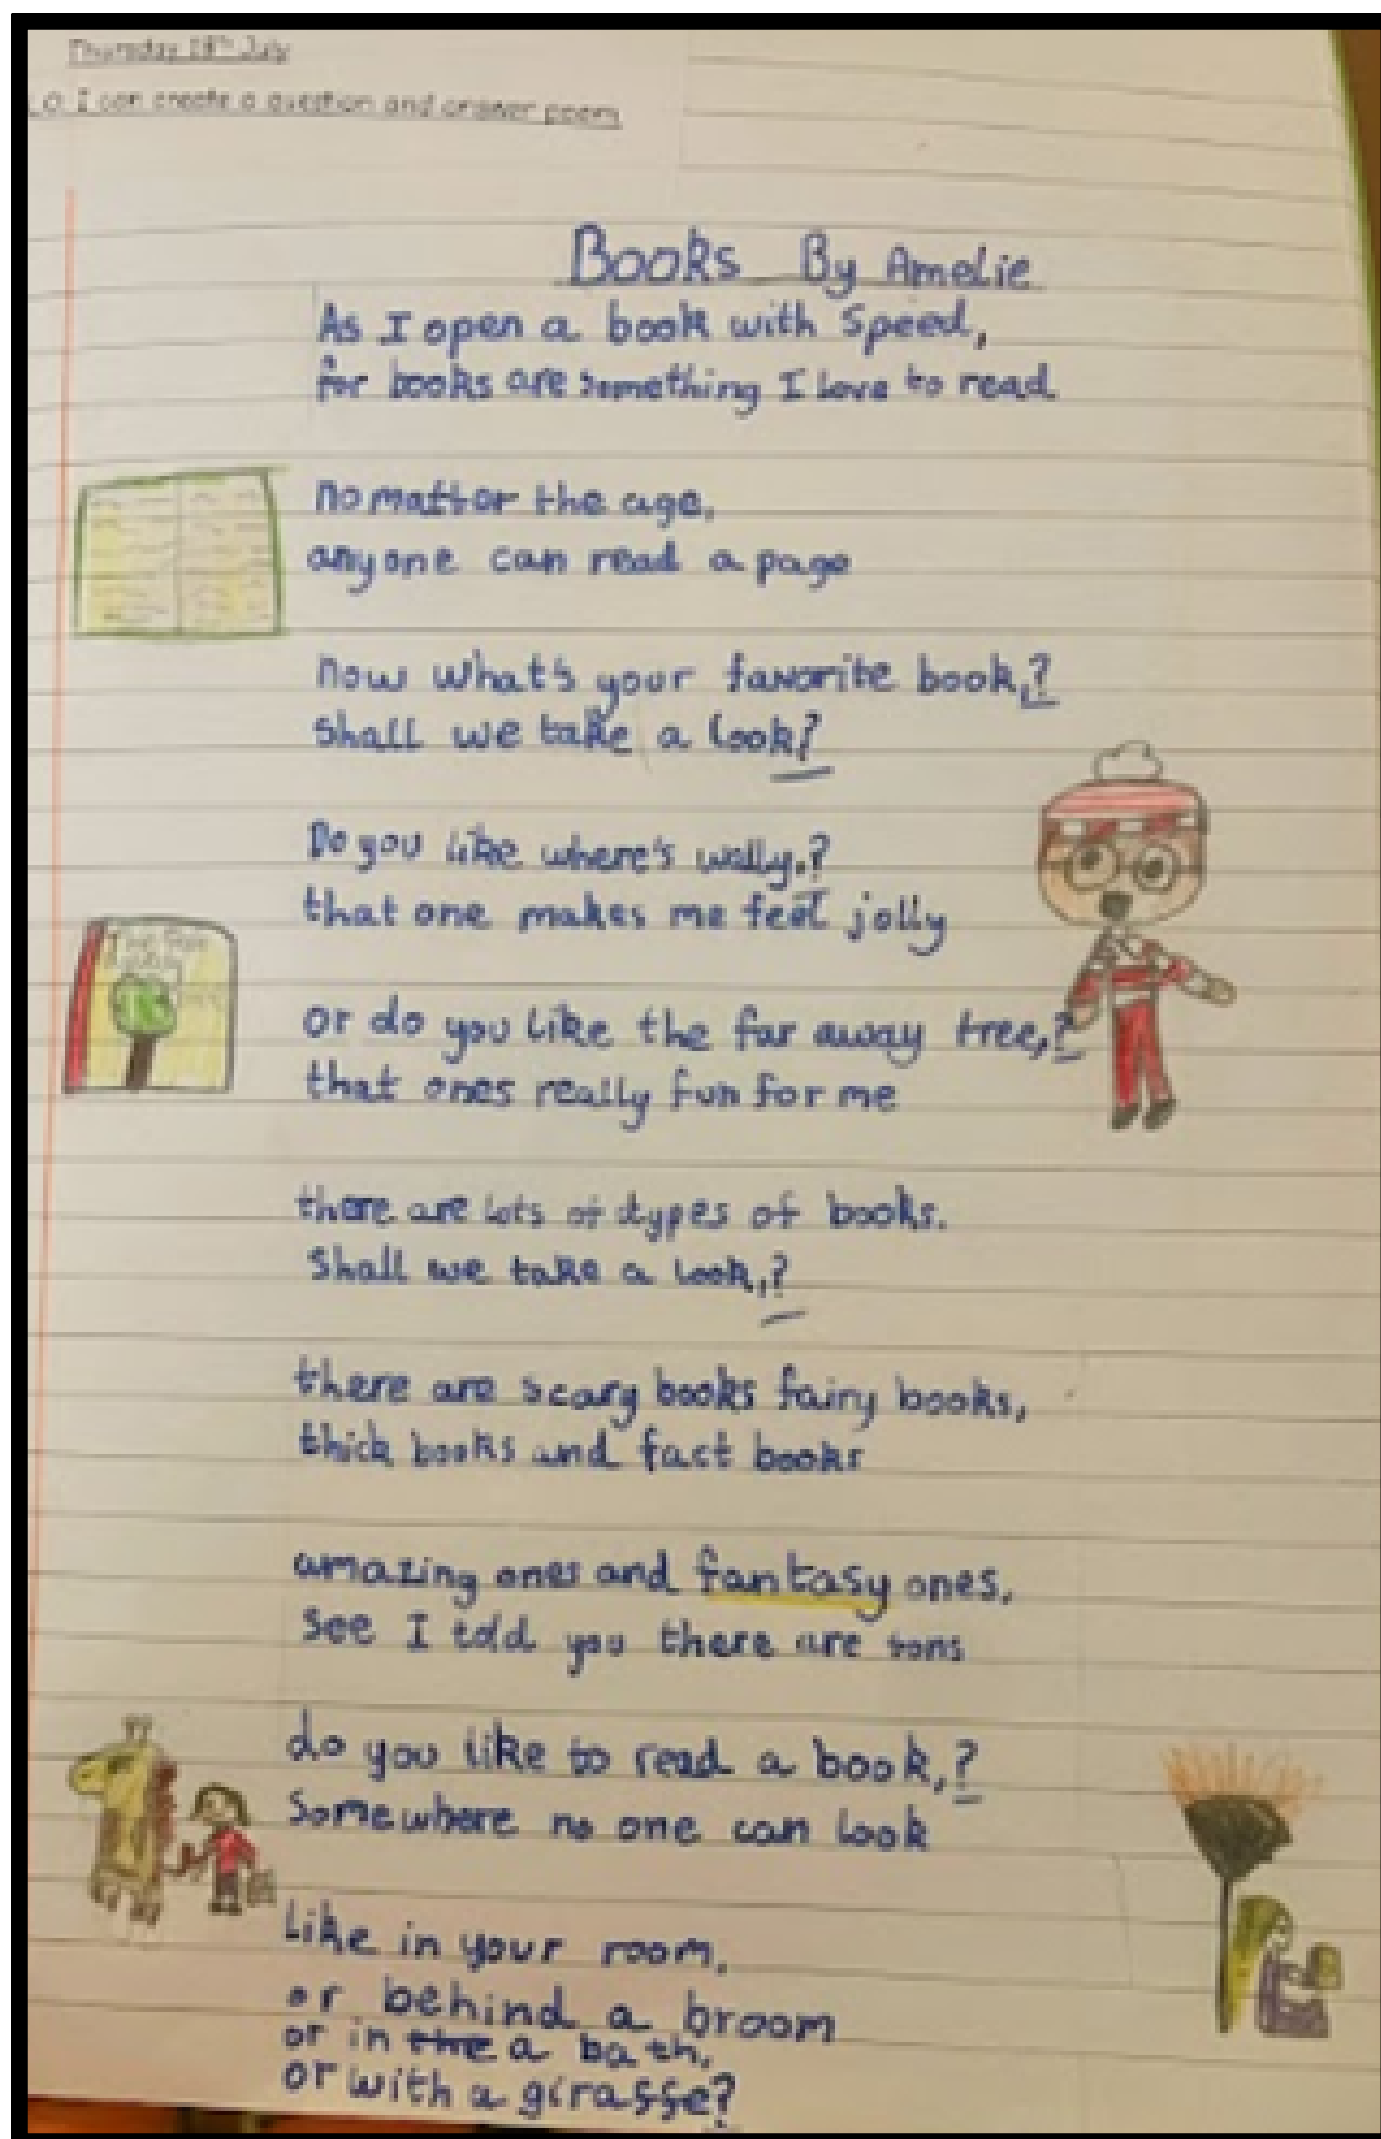 Thursday 18th July
L.O. I can create a question and answer poem
Books By Amelie
As I open a book with speed,
for books are something I love to read
no matter the age,
anyone can read a page
now what's your favorite book,?
shall we take a look?
Do you like where's wally,?
that one makes me feel jolly
The far away tree
or do you like the far away tree,?
that ones really fun for me
there are lots of types of books.
shall we take a look,?
there are scary books fairy books,
thick books and fact books
amazing ones and fantasy ones,
see I told you there are tons
do you like to read a book,?
Somewhere no one can look
Like in your room,
or behind a broom
or in the a bath,
or with a giraffe?